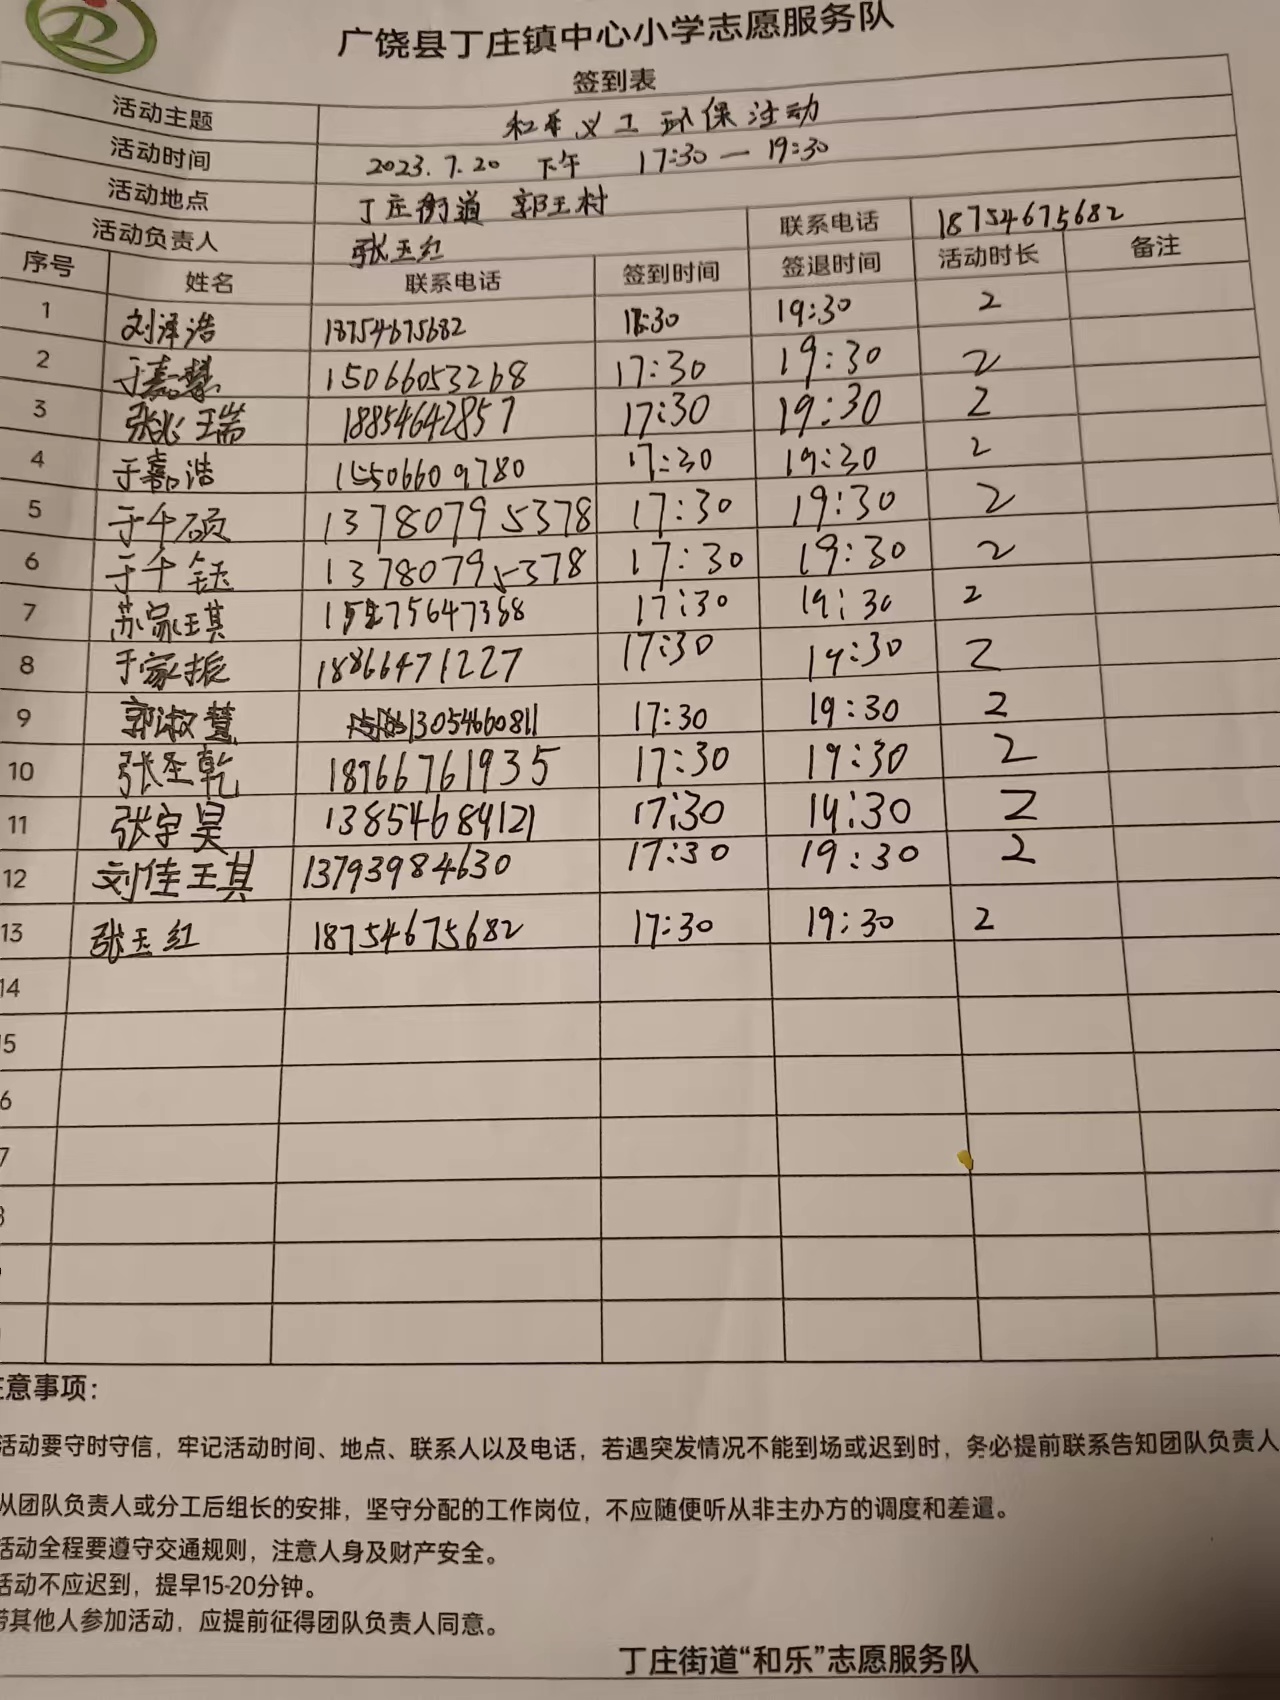 广饶县丁庄镇中心小学志愿服务队
签到表
活动主题 和乐义工 环保活动
活动时间 2023.7.20 下午 17:30—19:30
活动地点 丁庄街道 郭王村
活动负责人 张玉红 联系电话 18754675682
序号 姓名 联系电话 签到时间 签退时间 活动时长 备注
1 刘泽浩 18754675682 17:30 19:30 2
2 于嘉慧 15066053268 17:30 19:30 2
3 张兆瑞 18854642857 17:30 19:30 2
4 于嘉浩 15506609780 17:30 19:30 2
5 于千硕 13780795378 17:30 19:30 2
6 于千钰 13780795378 17:30 19:30 2
7 苏家琪 17:30 19:30 2
8 于家振 18866471227 17:30 19:30 2
9 郭淑慧 13054660811 17:30 19:30 2
10 张圣乾 18966761935 17:30 19:30 2
11 张宇昊 13854689121 17:30 19:30 2
12 刘佳琪 13793984630 17:30 19:30 2
13 张玉红 18754675682 17:30 19:30 2
14
5
6
7
意事项：
活动要守时守信，牢记活动时间、地点、联系人以及电话，若遇突发情况不能到场或迟到时，务必提前联系告知团队负责人
从团队负责人或分工后组长的安排，坚守分配的工作岗位，不应随便听从非主办方的调度和差遣。
活动全程要遵守交通规则，注意人身及财产安全。
活动不应迟到，提早15-20分钟。
带其他人参加活动，应提前征得团队负责人同意。
丁庄街道“和乐”志愿服务队